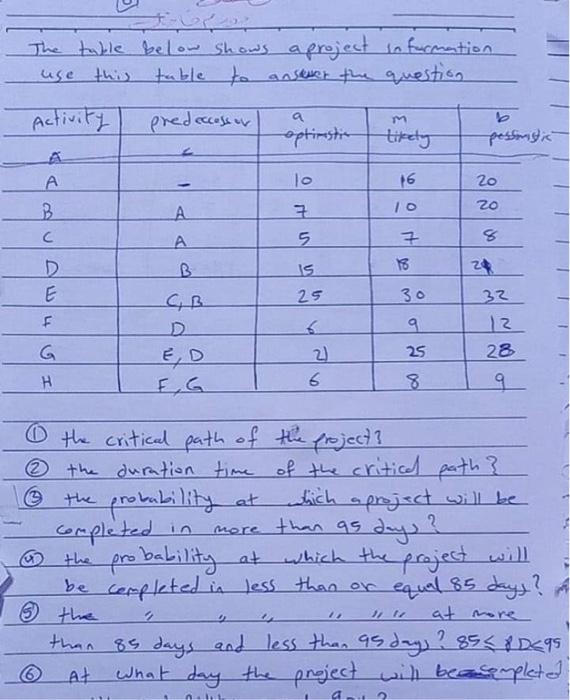 The table below shows a project information
use this table to answer the question
Activity predecessor a optimistic m likely b pessimistic
A - 10 16 20
B A 7 10 20
C A 5 7 8
D B 15 18
E C, B 25 30 32
F D 6 9 12
G E, D 21 25 28
H F, G 6 8 9
① the critical path of the project?
② the duration time of the critical path?
③ the probability at which a project will be
completed in more than 95 days?
④ the probability at which the project will
be completed in less than or equal 85 days?
⑤ the " " " " " " at more
than 85 days and less than 95 days? 85≤ D≤95
⑥ At what day the project will be completed